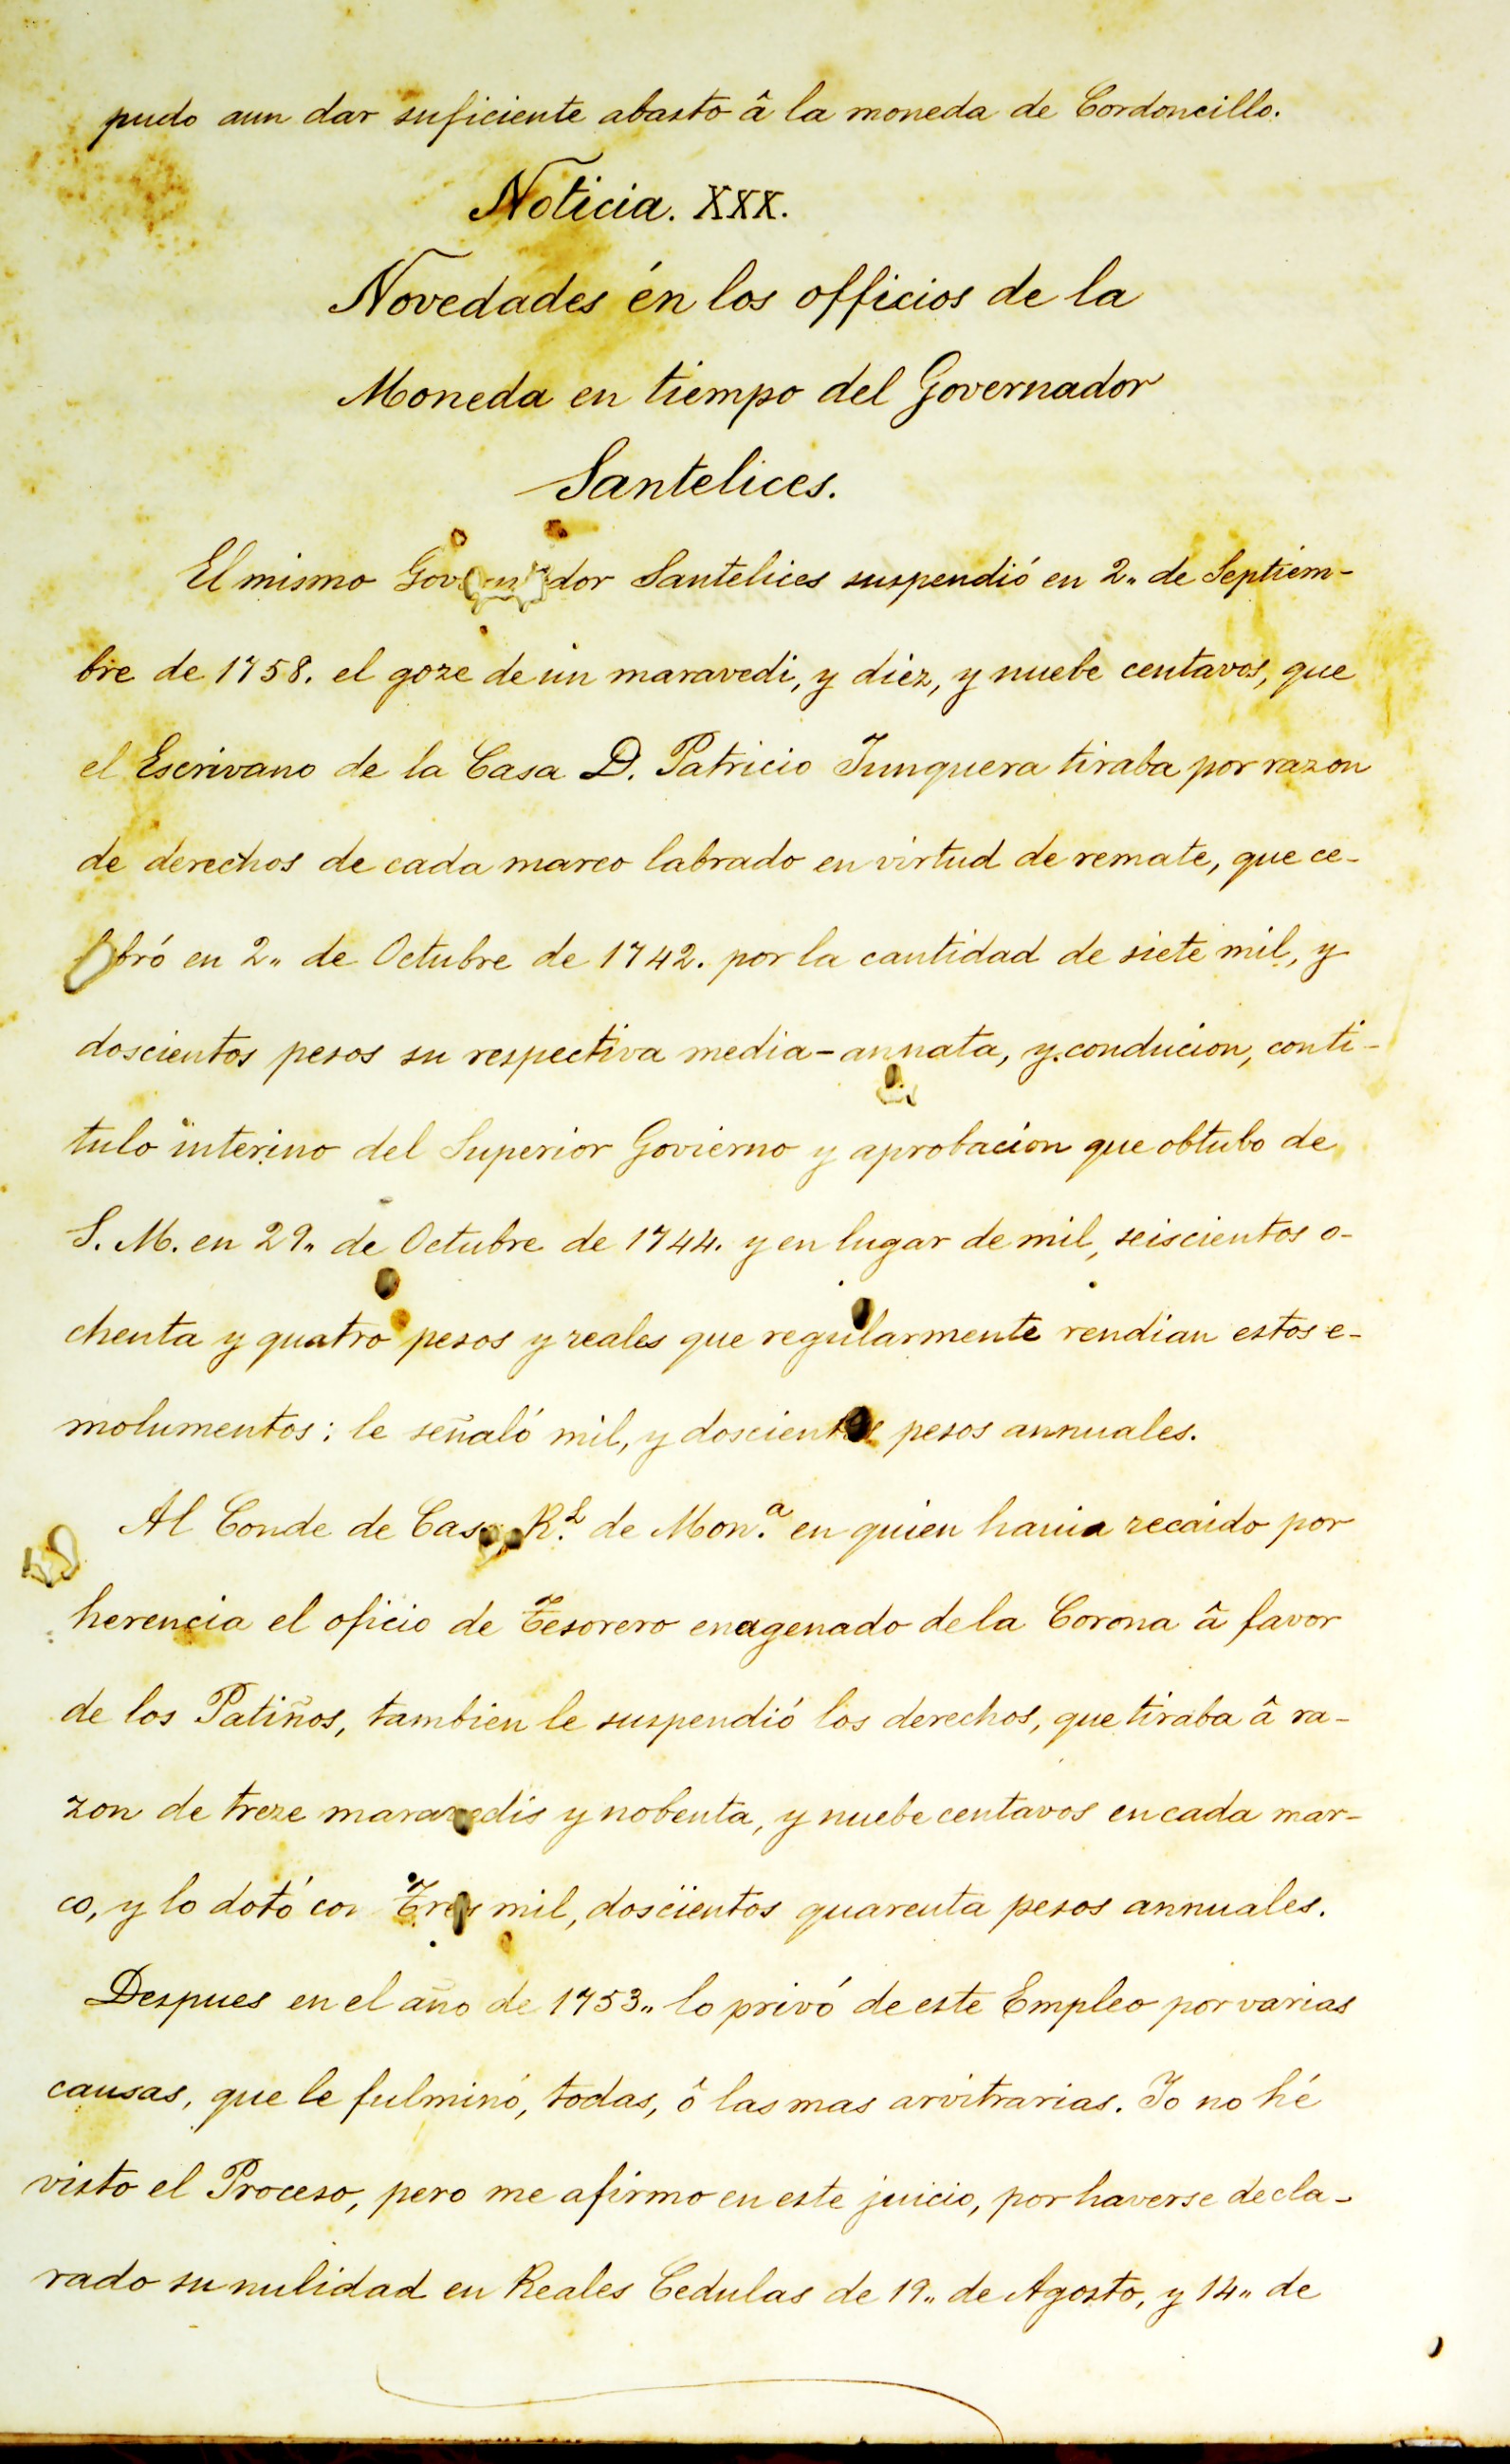 pudo aun dar suficiente abasto â la moneda de Cordoncillo.
Noticia. XXX.
Novedades én los officios de la
Moneda en tiempo del Governador
Santelices.
El mismo Governador Santelices suspendió en 2„ de Septiem-
bre de 1758. el goze de un maravedi, y diez, y nuebe centavos, que
el Escrivano de la Casa D. Patricio Junquera tiraba por razon
de derechos de cada marco labrado en virtud de remate, que ce-
lebró en 2„ de Octubre de 1742. por la cantidad de siete mil, y
doscientos pesos su respectiva media-annata, y conducion, conti-
tulo interino del Superior Govierno y aprobacion que obtubo de
S. M. en 29„ de Octubre de 1744. y en lugar de mil, seiscientos o-
chenta y quatro pesos y reales que regularmente rendian estos e-
molumentos; le señaló mil, y doscientos pesos annuales.
Al Conde de Casa R.l de Mon.a en quien havia recaido por
herencia el oficio de Tesorero enagenado de la Corona â favor
de los Patiños, tambien le suspendió los derechos, que tiraba â ra-
zon de treze maravedis y nobenta, y nuebe centavos en cada mar-
co, y lo dotó con Tres mil, doscientos quarenta pesos annuales.
Despues en el año de 1753„ lo privó de este Empleo por varias
causas, que le fulminó, todas, ô las mas arvitrarias. Io no hé
visto el Proceso, pero me afirmo en este juicio, por haverse decla-
rado su nulidad en Reales Cedulas de 19„ de Agosto, y 14„ de